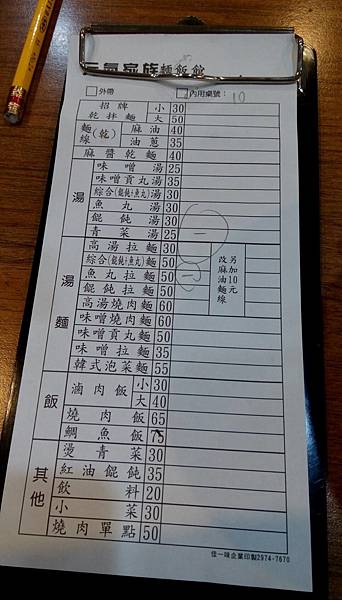 元氣家族麵飯館
外帶 內用桌號：10
招牌乾拌麵 小 30
大 50
麵線(乾) 麻油 40
油蔥 35
麻醬乾麵 40
湯
味噌湯 25
味噌貢丸湯 35
綜合(餛飩+魚丸)湯 30
魚丸湯 30
餛飩湯 30
青菜湯 25
湯麵
高湯拉麵 30
綜合(餛飩+魚丸)拉麵 50
魚丸拉麵 50
餛飩拉麵 50
高湯燒肉麵 60
味噌燒肉麵 60
味噌貢丸麵 50
味噌拉麵 35
韓式泡菜麵 55
另加10元
改麻油麵線
飯
滷肉飯 小 30
大 40
燒肉飯 65
鯛魚飯 75
其他
燙青菜 30
紅油餛飩 35
飲料 20
小菜 30
燒肉單點 50
佳一味企業印製2974-7670